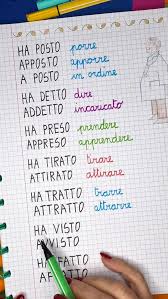 HA POSTO porre
APPOSTO apporre
A POSTO in ordine
HA DETTO dire
ADDETTO incaricato
HA PRESO prendere
APPRESO apprendere
HA TIRATO tirare
ATTIRATO attirare
HA TRATTO trarre
ATTRATTO attrarre
HA VISTO
AVVISTO
HA FATTO
AFFATTO